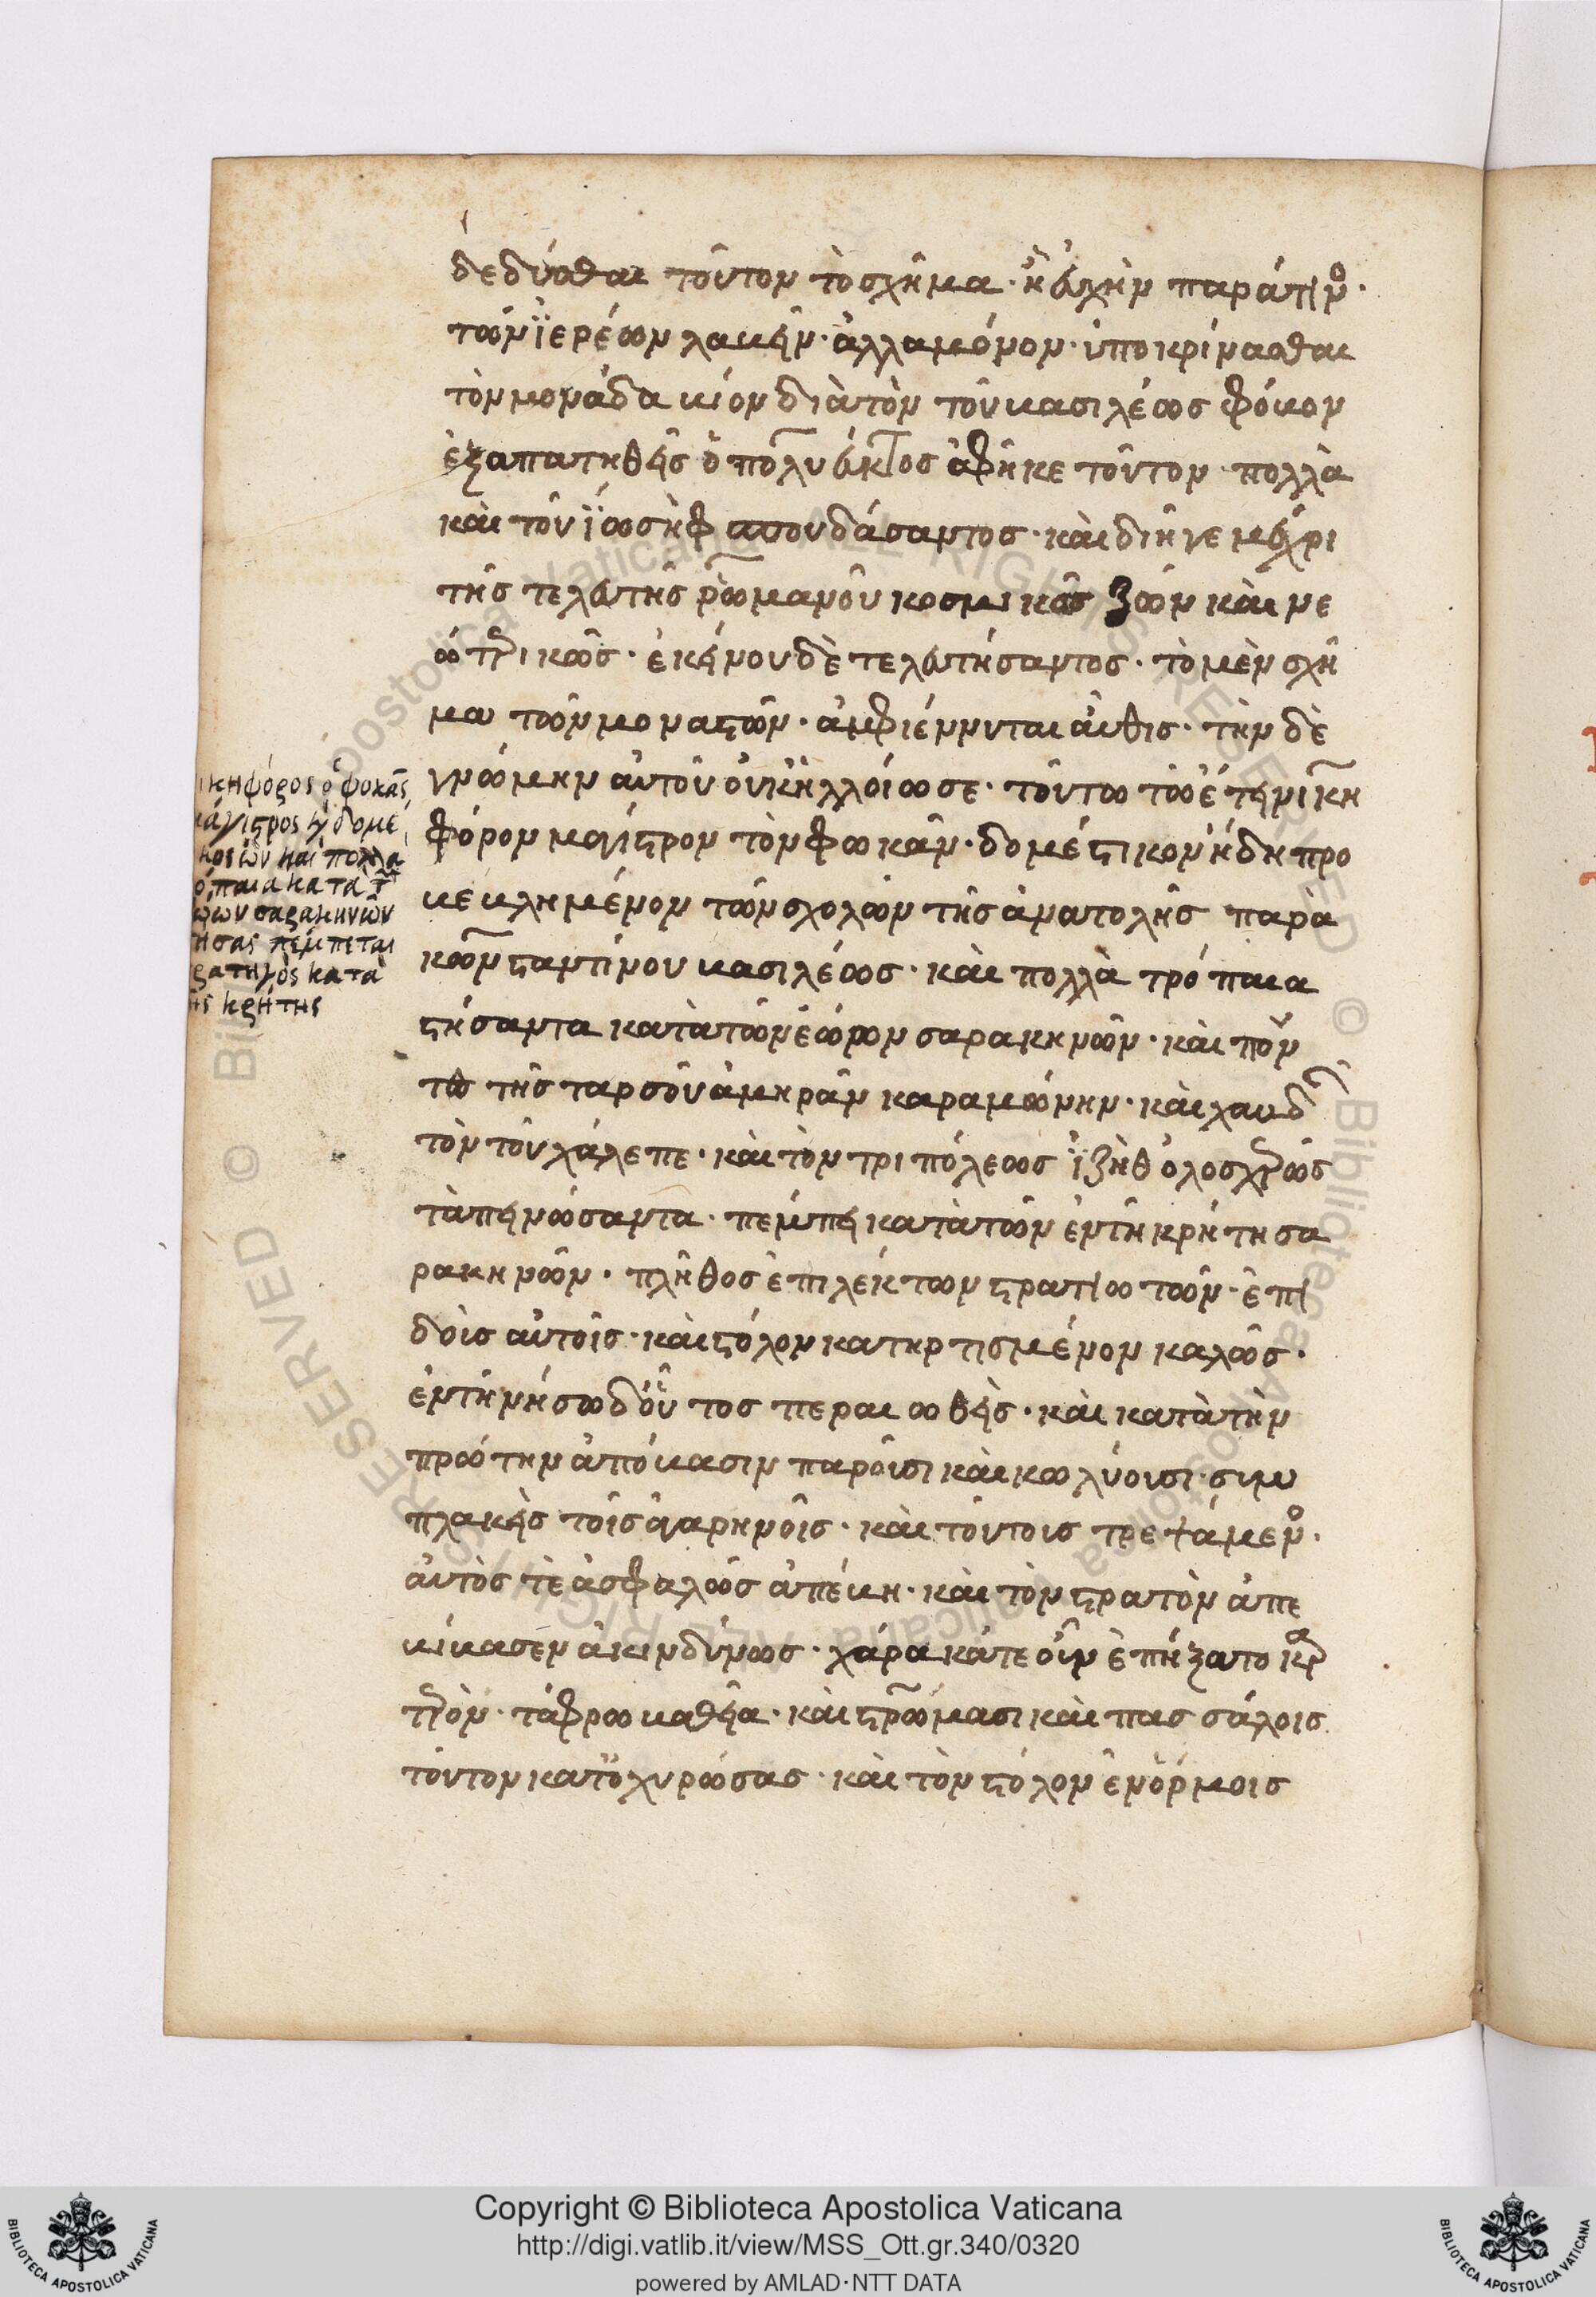 δεδύσθαι τοῦτον τὸ σχῆμα· ἢ εὐχὴν παρά τινος
τῶν ϊερέων λαβεῖν· ἀλλὰ μόνον· ὑποκρίνασθαι
τὸν μονάδα βίον διὰ τὸν τοῦ βασιλέως φόβον
ἐξαπατηθεὶς ὁ πολύευκτος ἀφῆκε τοῦτον· πολλὰ
καὶ τοῦ ϊωσὴφ σπουδάσαντος· καὶ διῆγε μέχρι
τῆς τελευτῆς ῥωμανοῦ κοσμικῶς ζῶν καὶ νε
ωτερικῶς· ἐκείνου δὲ τελευτήσαντος· τὸ μὲν σχῆ
μα τῶν μοναστῶν· ἀμφιέννυται αὖθις· τὴν δὲ
γνώμην αὐτοῦ οὐκ ἠλλοίωσε· τούτω τῶ ἔτει νικη
φόρον μάγιστρον τὸν φωκᾶν· δομέστικον ἤδη προ
βεβλημένον τῶν σχολῶν τῆς ἀνατολῆς παρὰ
κωνσταντίνου βασιλέως· καὶ πολλὰ τρόπαια
στήσαντα κατὰ τῶν ἑώων σαρακηνῶν· καὶ τόν
τε τῆς ταρσοῦ ἀμηρᾶν καραμώνην· καὶ χαυδᾶν
τὸν τοῦ χάλεπε· καὶ τὸν τριπόλεως ϊζὴθ ὁλοσχερῶς
ταπεινώσαντα· πέμπει κατὰ τῶν ἐν τῆ κρήτη σα
ρακηνῶν· πλῆθος ἐπιλέκτων στρατιωτῶν· ἐπι
δοὺς αὐτοῖς· καὶ στόλον κατηρτισμένον καλῶς·
ἐν τῆ νήσω δ' οὗτος περαιωθεὶς· καὶ κατὰ τὴν
πρώτην ἀπόβασιν παροῦσι καὶ κωλύουσι· συμ
πλακεὶς τοῖς ἀγαρηνοῖς· καὶ τούτους τρεψάμενος·
αὐτὸς τὲ ἀσφαλῶς ἀπέβη· καὶ τὸν στρατὸν ἀπε
βίβασεν ἀκινδύνως· χάρακά τε οὖν ἐπήξατο καρ
τερὸν· τάφρω βαθεία· καὶ στρώμασι καὶ πασσάλοις
τοῦτον κατοχυρώσας· καὶ τὸν στόλον ἐν ὅρμοις
ικηφόρος ὁ φωκᾶς
μάγιστρος κ δομέ
κος ὢν καὶ πολλα
όπαια κατὰ τ
ώων σαρακηνῶν
ήσας πέμπεται
ρατηγὸς κατὰ
ῆς κρήτης
Copyright © Biblioteca Apostolica Vaticana
http://digi.vatlib.it/view/MSS_Ott.gr.340/0320
powered by AMLAD·NTT DATA
BIBLIOTECA APOSTOLICA VATICANA
BIBLIOTECA APOSTOLICA VATICANA